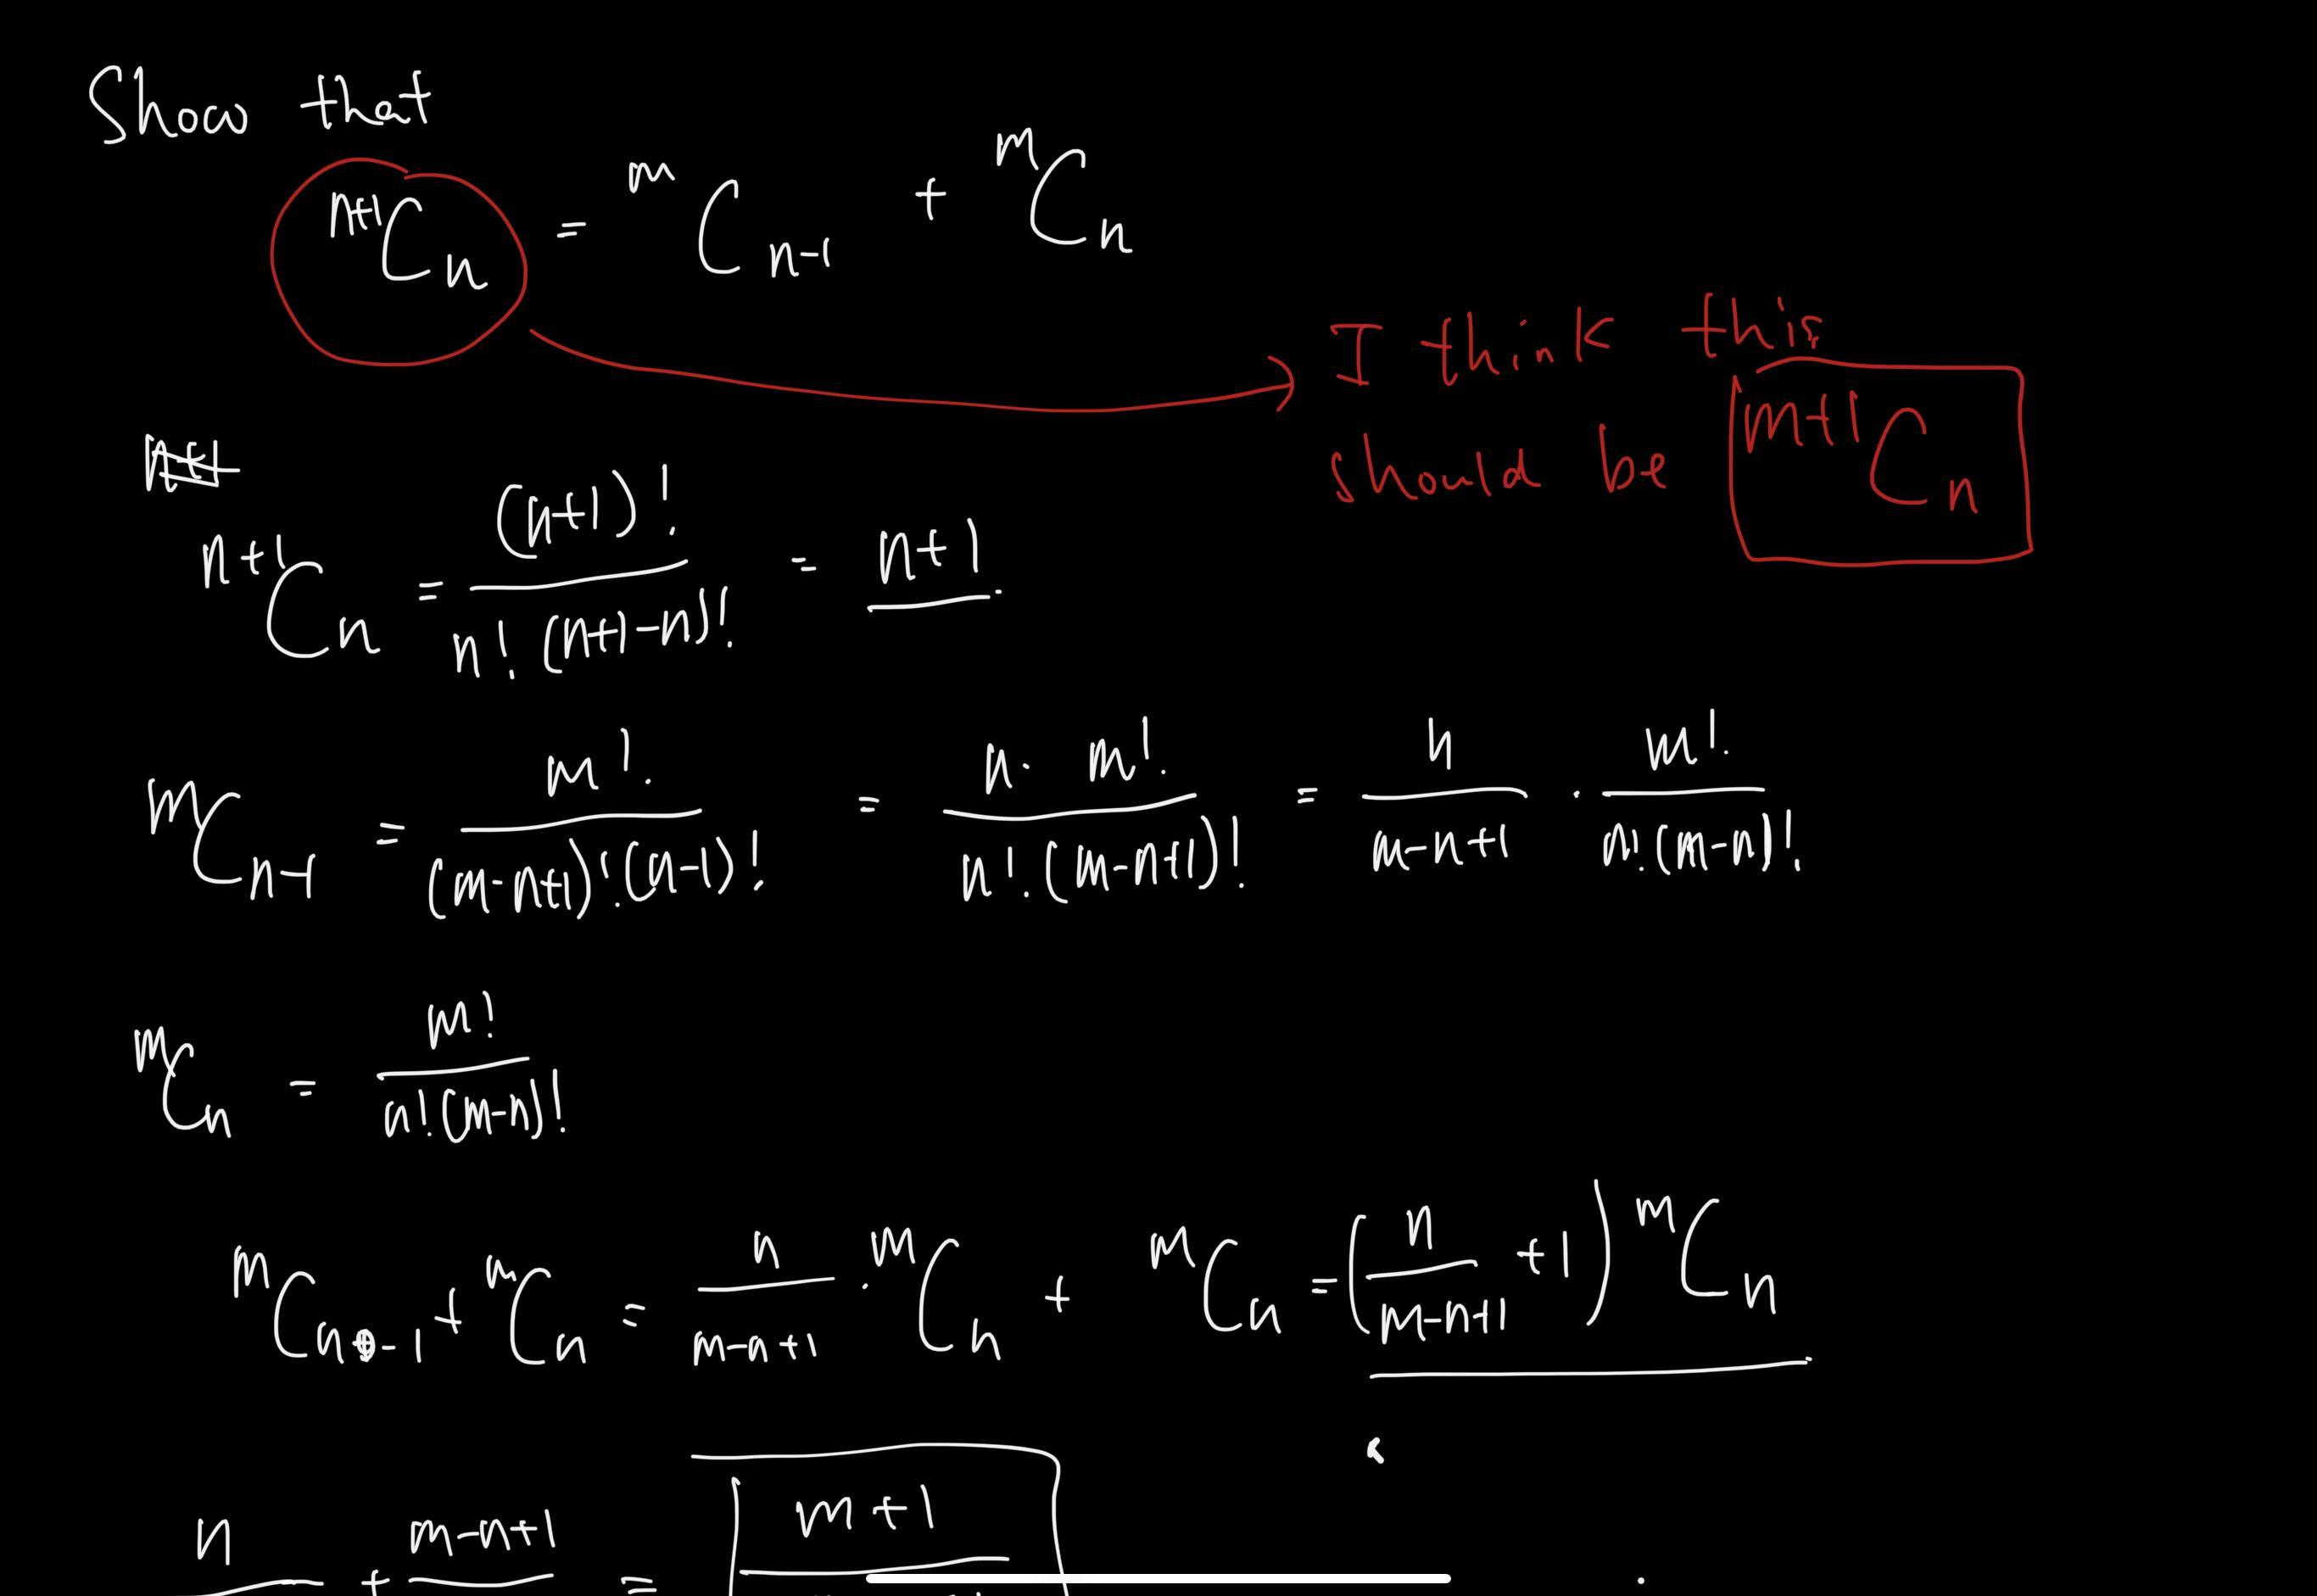 Show that
ⁿ⁺¹Cₙ = ᵐCₙ₋₁ + ᵐCₙ
I think this
should be ᵐ⁺¹Cₙ
ⁿ⁺¹Cₙ = (n+1)! / n! (n+1-n)! = n+1
ᵐCₙ₋₁ = m! / (m-n+1)! (n-1)! = n · m! / n! (m-n+1)! = n / m-n+1 · m! / n! (m-n)!
ᵐCₙ = m! / n! (m-n)!
ᵐCₙ₋₁ + ᵐCₙ = n / m-n+1 · ᵐCₙ + ᵐCₙ = (n / m-n+1 + 1) ᵐCₙ
n + m-n+1 = m+1